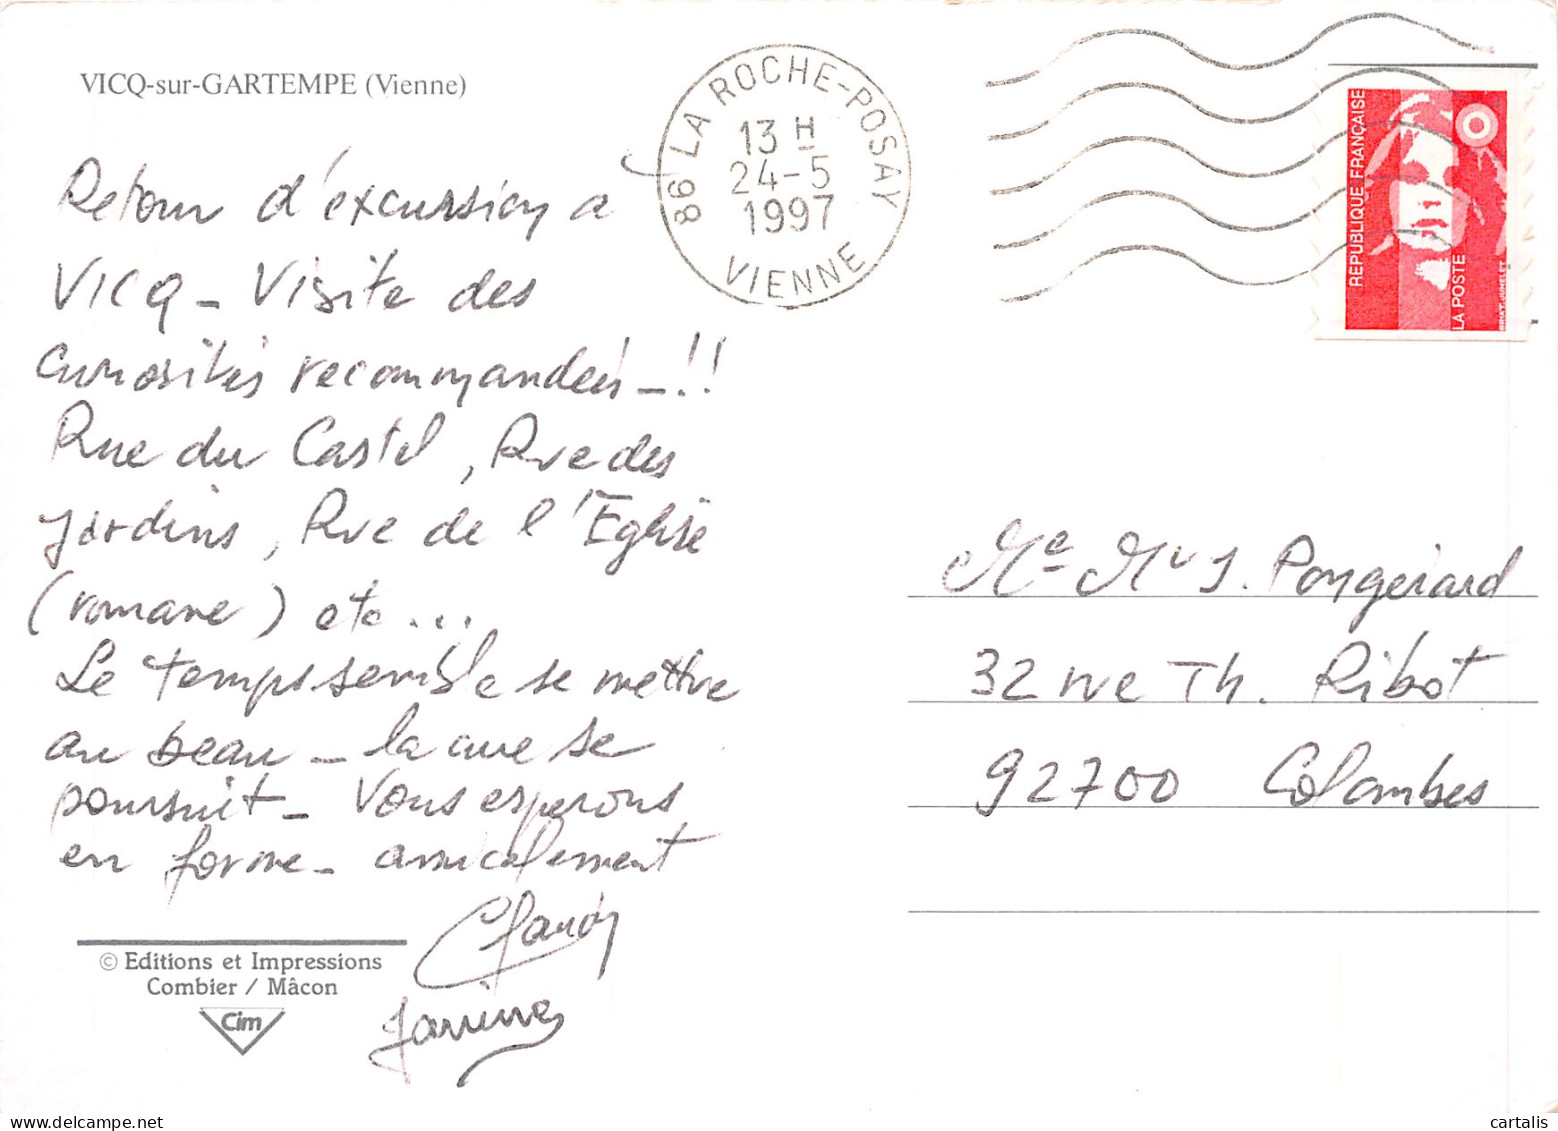 VICQ-sur-GARTEMPE (Vienne)
86 LA ROCHE-POSAY
13 H
24-5
1997
VIENNE
REPUBLIQUE FRANÇAISE
LA POSTE
Retour d'excursion à
VICQ _ Visite des
curiosités recommandées _ !!
Rue du Castel, Rue des
Jardins, Rue de l'Eglise
(romane) etc...
Le temps semble se mettre
au beau _ la cure se
poursuit _ Vous espérons
en forme _ amicalement
Me Mr J. Pongerard
32 rue Th. Ribot
92700 Colombes
© Editions et Impressions
Combier / Mâcon
Cim
cartalis